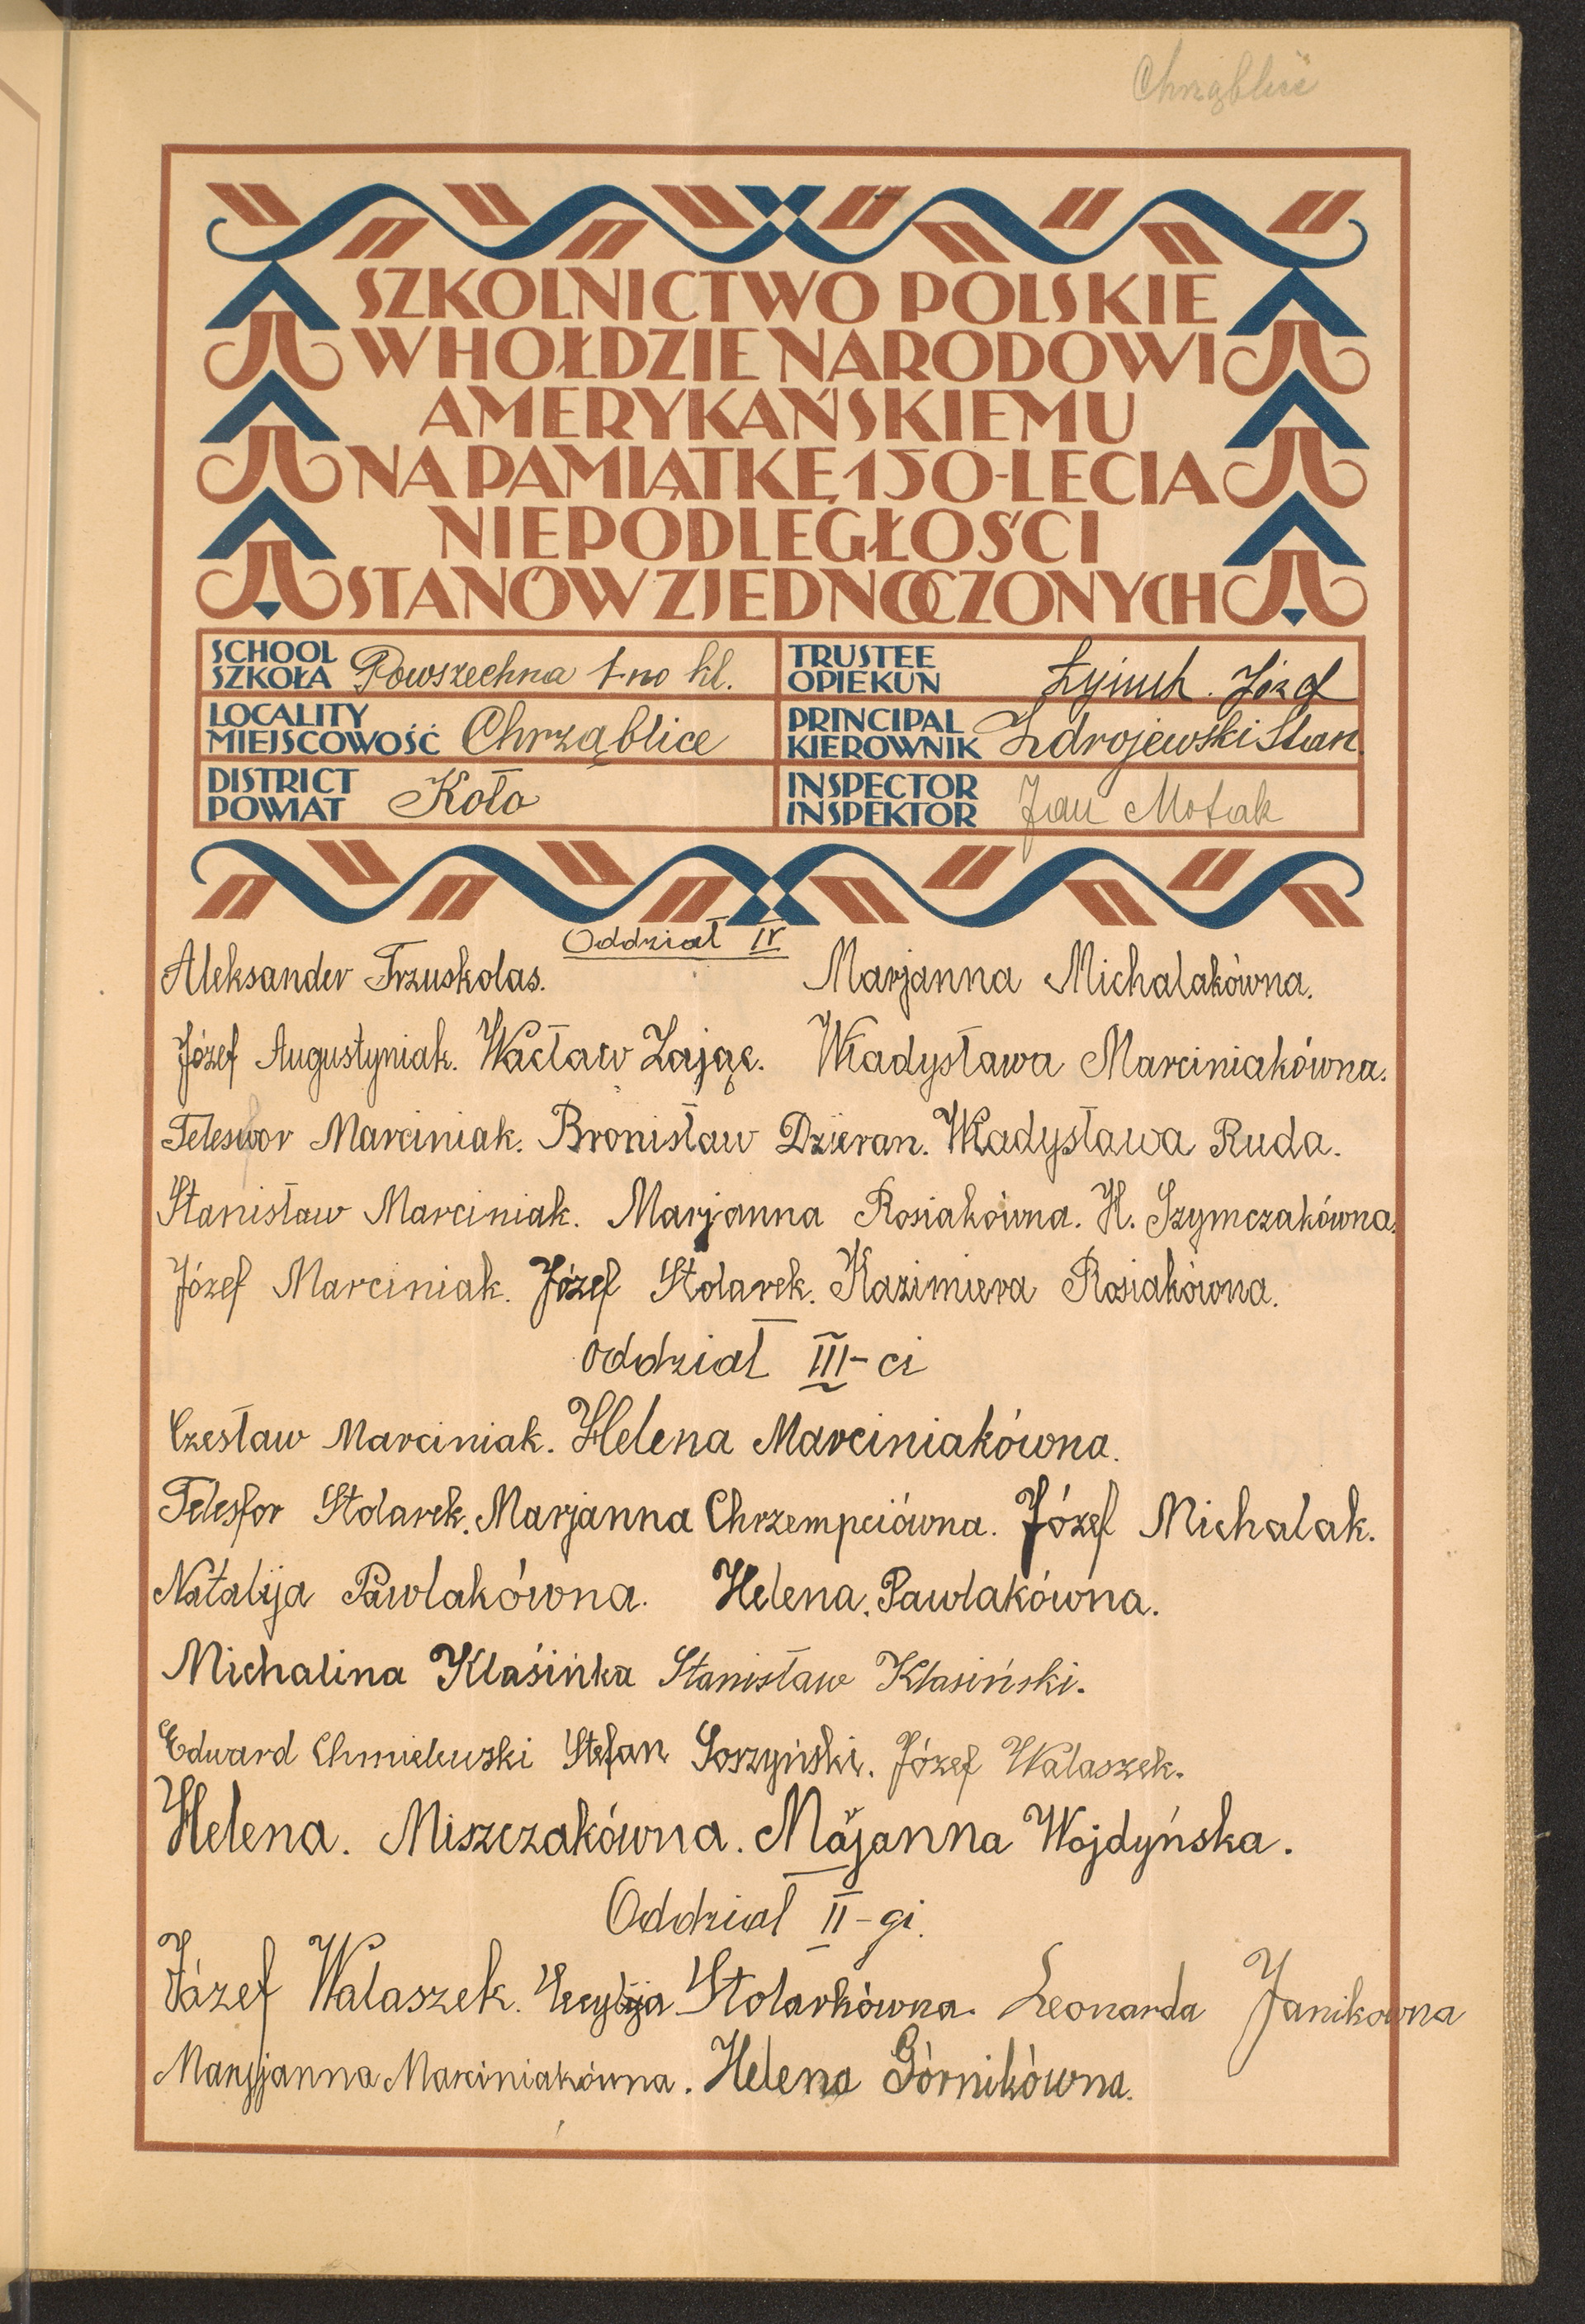 Chrząblice
SZKOLNICTWO POLSKIE
W HOŁDZIE NARODOWI
AMERYKAŃSKIEMU
NA PAMIĄTKĘ 150-LECIA
NIEPODLEGŁOŚCI
STANÓW ZJEDNOCZONYCH
SCHOOL
SZKOŁA Powszechna 1-no kl.
TRUSTEE
OPIEKUN Józef
LOCALITY
MIEJSCOWOŚĆ Chrząblice
PRINCIPAL
KIEROWNIK Zdrojewski Stan.
DISTRICT
POWIAT Koło
INSPECTOR
INSPEKTOR Jan Motak
Oddział IV
Aleksander Trzuskolas. Marjanna Michalakówna.
Józef Augustyniak. Wacław Zając. Władysława Marciniakówna.
Teleswor Marciniak. Bronisław Dzieran. Władysława Ruda.
Stanisław Marciniak. Marjanna Rosiakówna. H. Szymczakówna.
Józef Marciniak. Józef Stolarek. Kazimiera Rosiakówna.
Oddział III-ci
Czesław Marciniak. Helena Marciniakówna.
Telesfor Stolarek. Marjanna Chrzempciówna. Józef Michalak.
Natalija Pawlakówna. Helena. Pawlakówna.
Michalina Klaśińka Stanisław Klasiński.
Edward Chmielewski Stefan Soszyński. Józef Walaszek.
Helena. Miszczakówna. Marjanna Wojdyńska.
Oddział II-gi.
Józef Walaszek. Stolarkówna. Leonarda Janikowna
Maryjanna Marciniakówna. Helena Górnikówna.